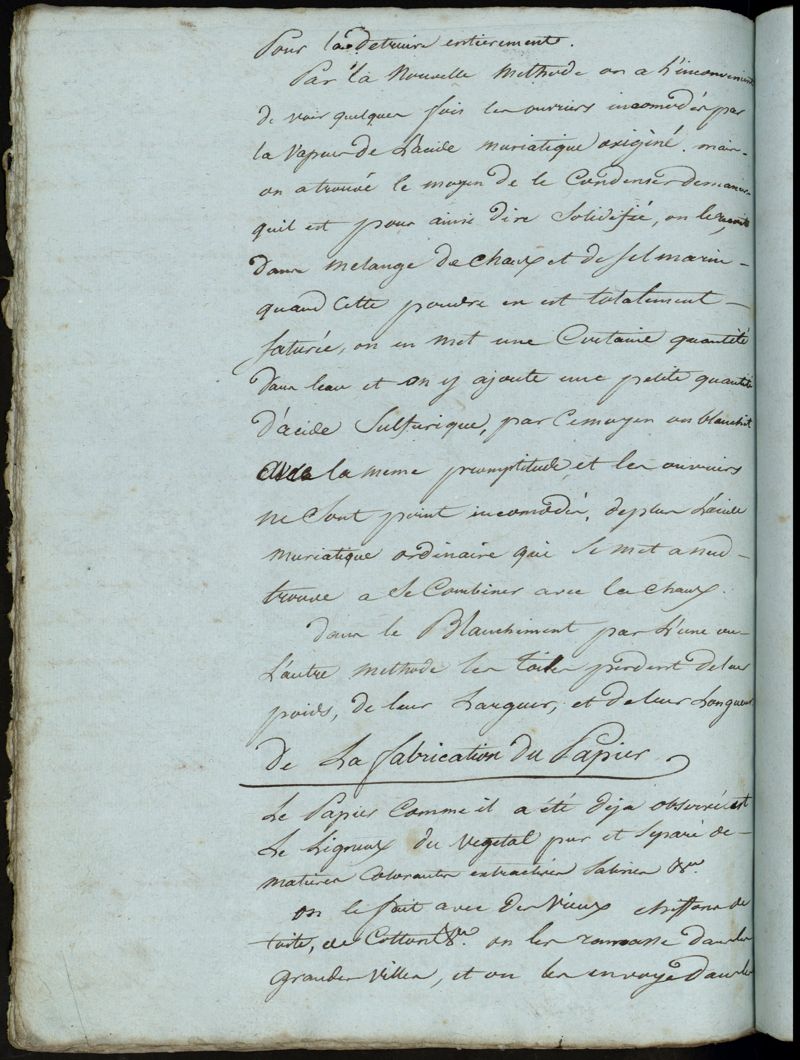 Pour la detruire entierement.
Par la Nouvelle methode on a l'inconvenient
de voir quelques fois les ouvriers incomodés par
la vapeur de L'acide muriatique oxigéné. mais
on a trouvé le moyen de le Condenser de maniere
quil est pour ainsi dire Solidifié, on le
dans melange de chaux et de sel marin
quand Cette poudre en est totalement
saturée, on en met une Certaine quantité
dans leau et on y ajoute une petite quantité
d'acide Sulfurique, par Cemoyen on blanchit
avec la meme promptitude, et les ouvriers
ne Sont point incomodés, deplus L'acide
muriatique ordinaire qui Se met a nud
trouve a Se Combiner avec la chaux.
dans le Blanchiment par L'une ou
L'autre methode les toiles perdent deleur
poids, de leur Largeur, et deleur Longueur
De La fabrication du Papier
Le Papier Comme il a été deja observé est
Le Ligneux du Vegetal pur et Separé de
matieres Colorantes extractives Salines &ca
on le fait avec des Vieux chiffons de
toile, de Cotton &ca. on les ramasse dans les
grandes Villes, et on les envoye dans les